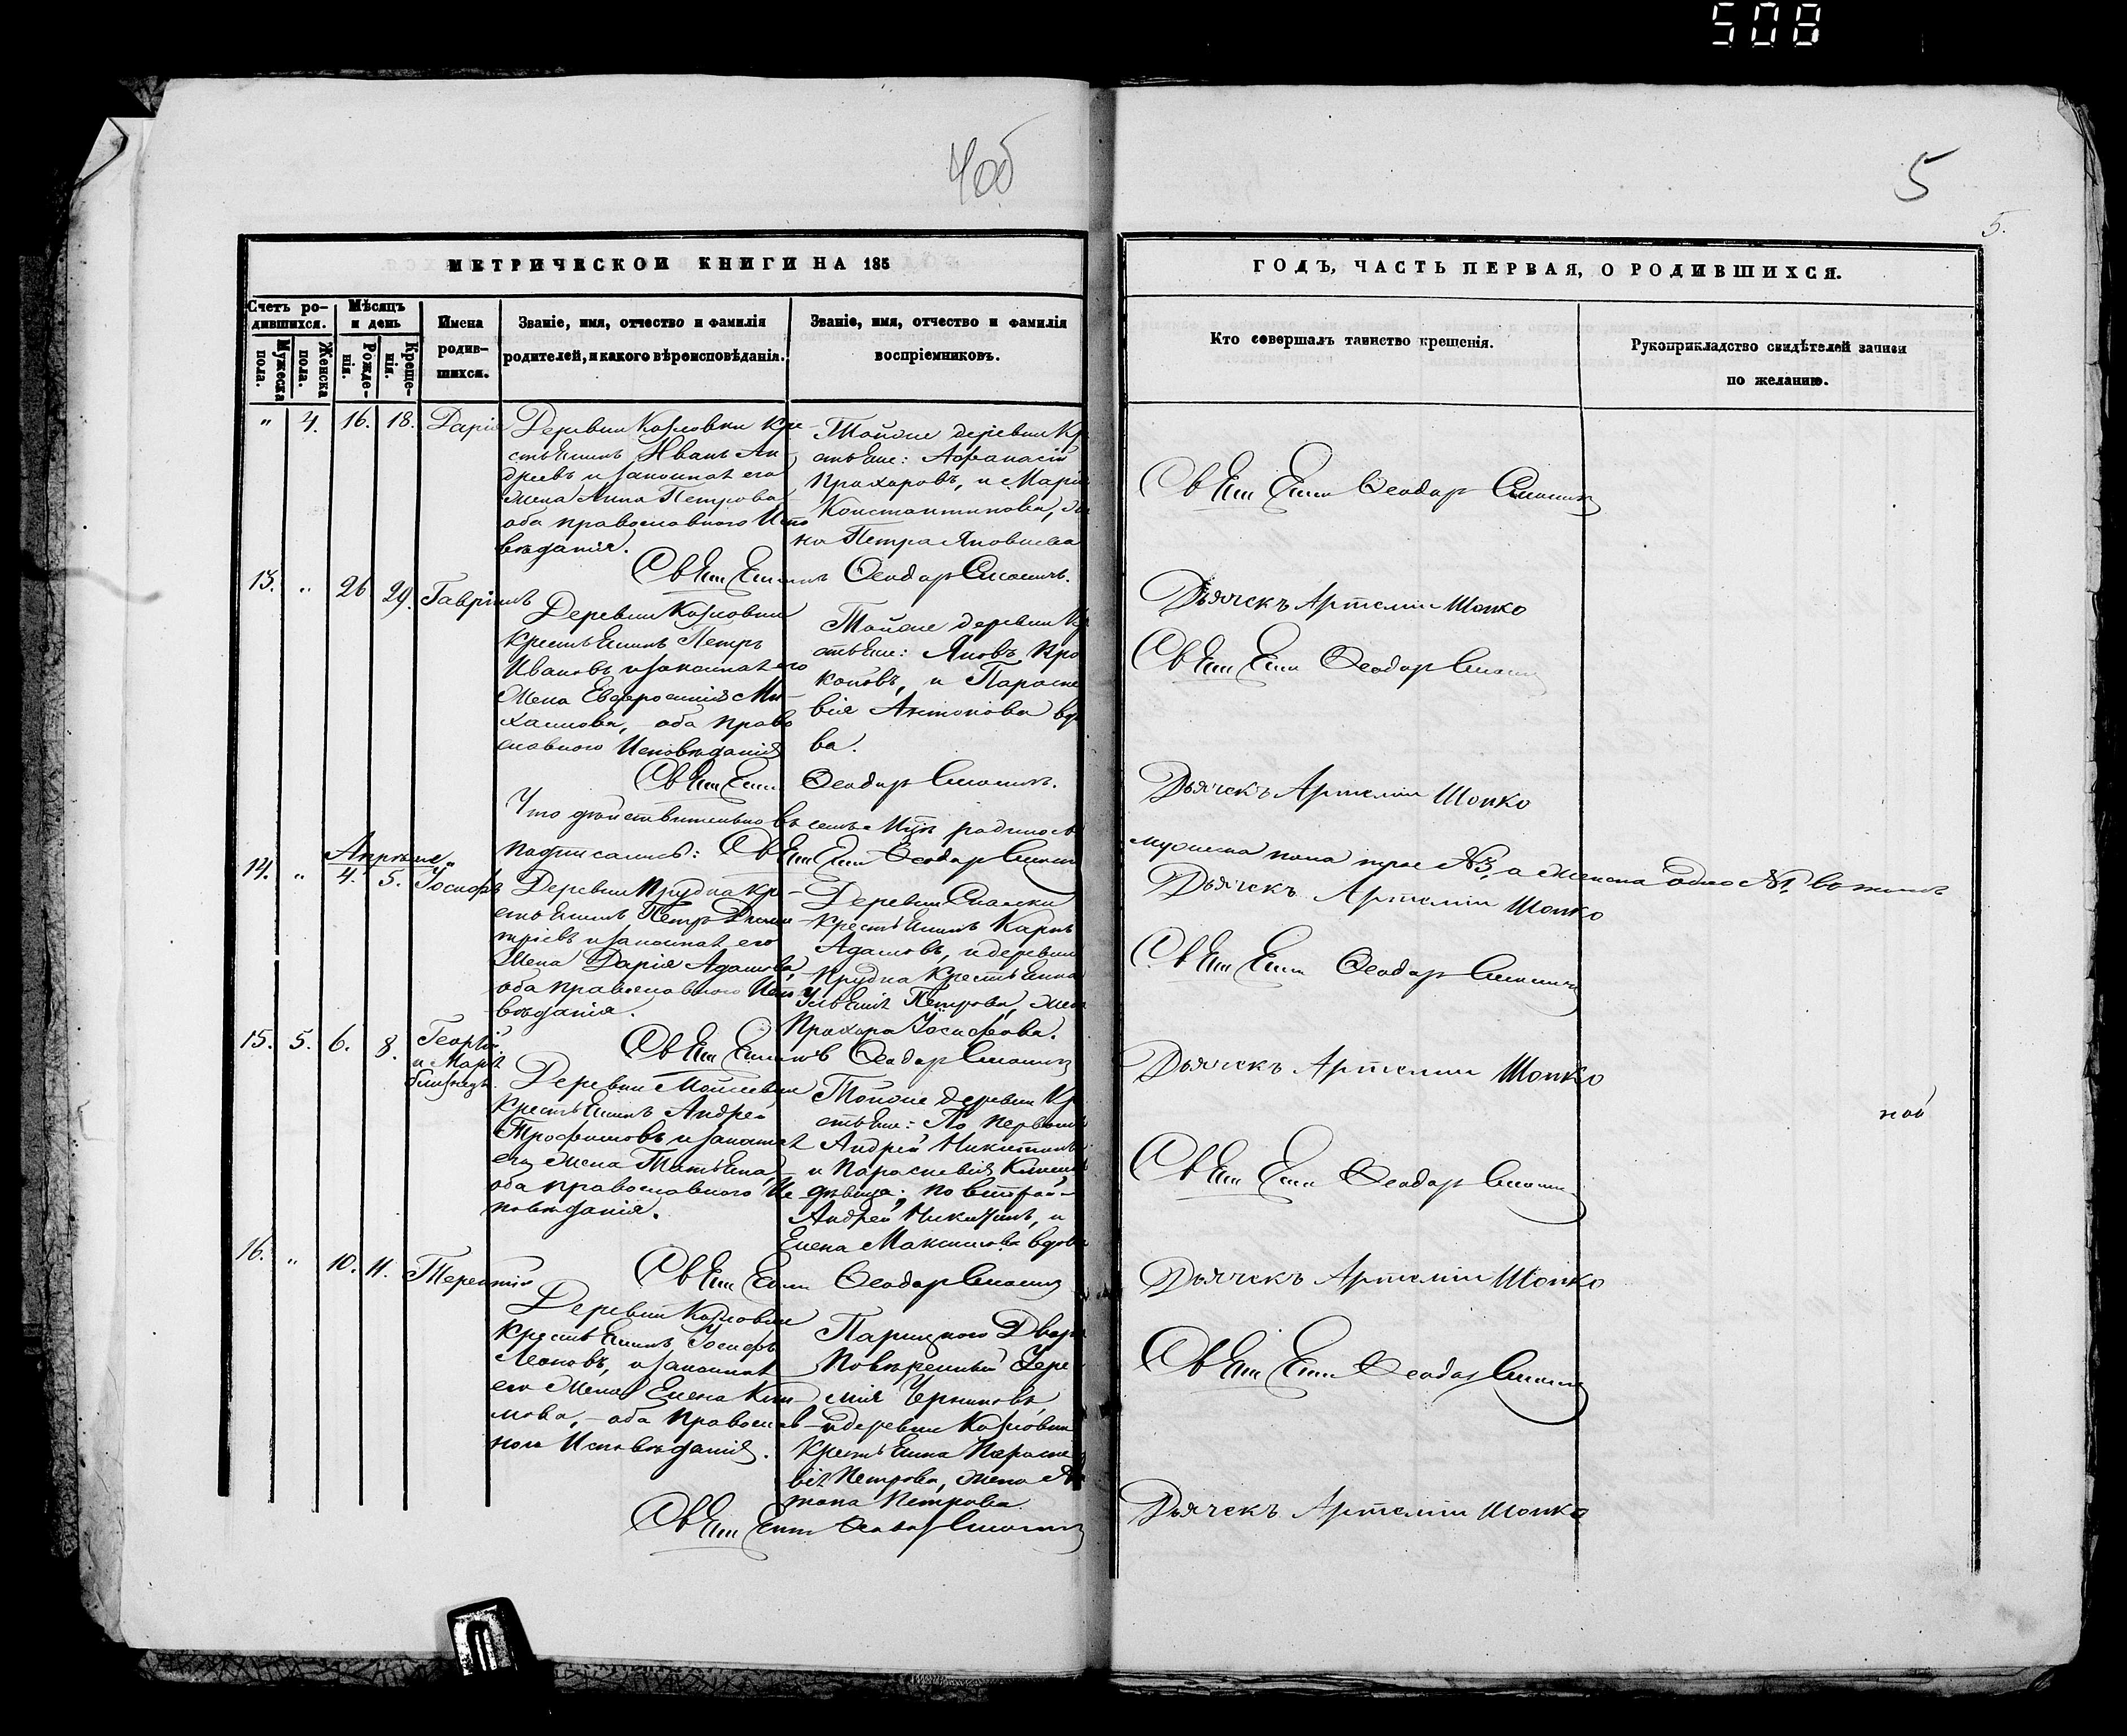 508
4об
5
5.
МЕТРИЧЕСКОЙ КНИГИ НА 185
ГОДЪ, ЧАСТЬ ПЕРВАЯ, О РОДИВШИХСЯ.
Счетъ ро-
дившихся.
Мужеска
пола.
Женска
пола.
Мѣсяцъ
и день
Рожде-
нія.
Креще-
нія.
Имена
родив-
шихся.
Званіе, имя, отчество и фамилія
родителей, и какого вѣроисповѣданія.
Званіе, имя, отчество и фамилія
воспріемниковъ.
Кто совершалъ таинство крещенія.
Рукоприкладство свидѣтелей записи
по желанію.
" 4. 16. 18. Дарія
Деревни Козловки Кре-
стьянинъ Иванъ Ан-
дреевъ и законная его
жена Анна Петрова
оба православного Испо
вѣданія.
Тойже деревни Кр
стьяне: Афанасій
Прохоровъ, и Марія
Константинова, же
на Петра Яковлева
Священникъ Феодоръ
Священ Феодоръ
Дьячекъ Артемій Шопко
13. " 26 29. Гавріилъ
Деревни Козловки
крестьянинъ Петръ
Ивановъ и законная его
жена Евфросинія Ми-
хайлова, - оба право
славного Исповѣданія
Тойже деревни Кр
стьяне: Яковъ Про
коповъ, и Параске
вія Антонова вдо
ва.
Священ Феодоръ
Священ Феодоръ
Дьячекъ Артемій Шопко
Что дѣйствительно въ семъ М-цѣ родилось
мужеска пола трое №3, а женска одно №1. въ томъ
подписались: Священ Феодоръ
Дьячекъ Артемій Шопко
Апрѣль
14. " 4. 5. Іосифъ
Деревни Прудка кре-
стьянинъ Петръ Дими
тріевъ и законная его
жена Дарія Адамова,
оба православного Испо
вѣданія.
Деревни
крестьянинъ Карпъ
Адамовъ, и деревни
Прудка крестьянка
Петрова, жена
Прохора Іосифова.
Священникъ Феодоръ
Священ Феодоръ
Дьячекъ Артемій Шопко
15. 5. 6. 8. Георгій
и Марія
близнецы.
Деревни Моисеевки
крестьянинъ Андрей
Трофимовъ и законная
его жена Татьяна,
оба православного Ис
повѣданія.
Тойже деревни Кр
стьяне: По первому
Андрей Никитинъ
и Параскевія
дѣвица; по второй-
Андрей Никитинъ, и
Елена Максимова вдова
ной
Священ Феодоръ
Священ Феодоръ
Дьячекъ Артемій Шопко
16. " 10. 11. Терентій
Деревни Козловки
крестьянинъ Іосифъ
Леоновъ, и законная
его жена Елена Кли
мова, - оба православ
ного Исповѣданія.
Двора
Повѣренный Іере
мія Черниковъ
и деревни Козловки
крестьянка Параске
вія Петрова, жена
Петрова
Священ Феодоръ
Священ Феодоръ
Дьячекъ Артемій Шопко